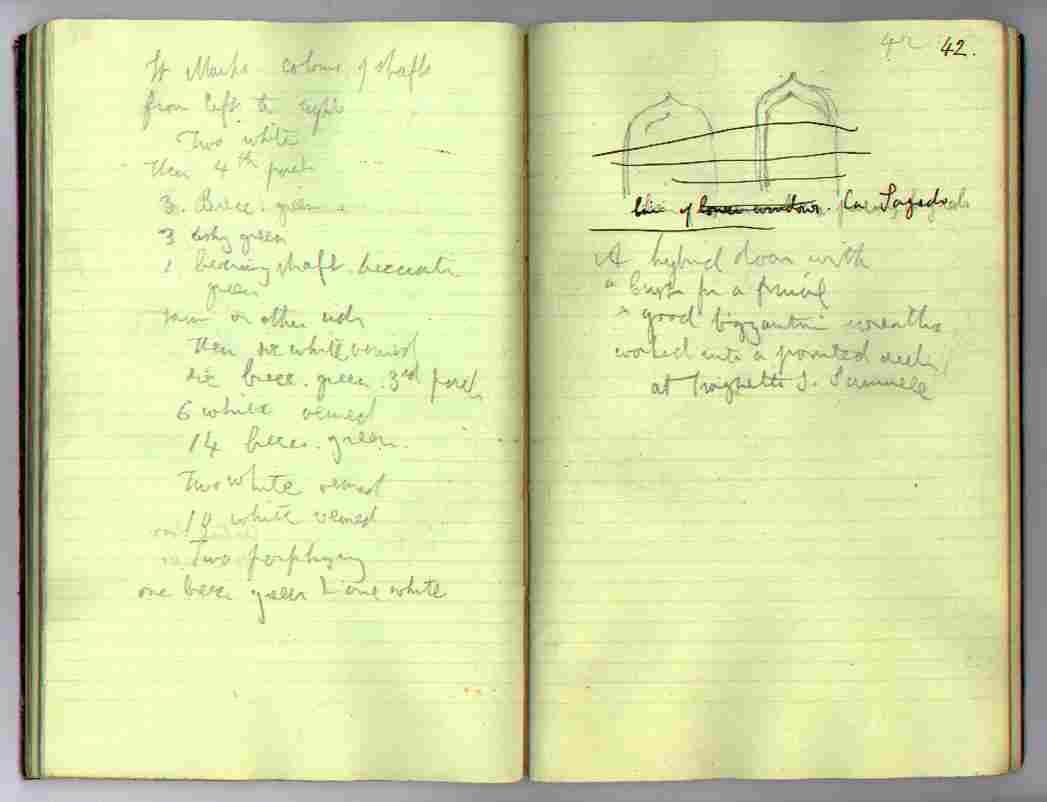 St Marks colour of shafts
from left to right
Two white
then 4th porch
3. Brecc. green
3 dusky green
1 bearing shaft breccia
green
same on other side
then six white veined
six brecc. green. 3rd porch
6 white veined
14 brecc. green.
Two white veined
14 white veined
Two porphyry
one brecc green & one white
42 42.
of lower windows. Ca Sagredo
A hybrid door with
a bust for a finial
& good byzantine wreaths
worked into a pointed arch
at Traghetto S. Samuele